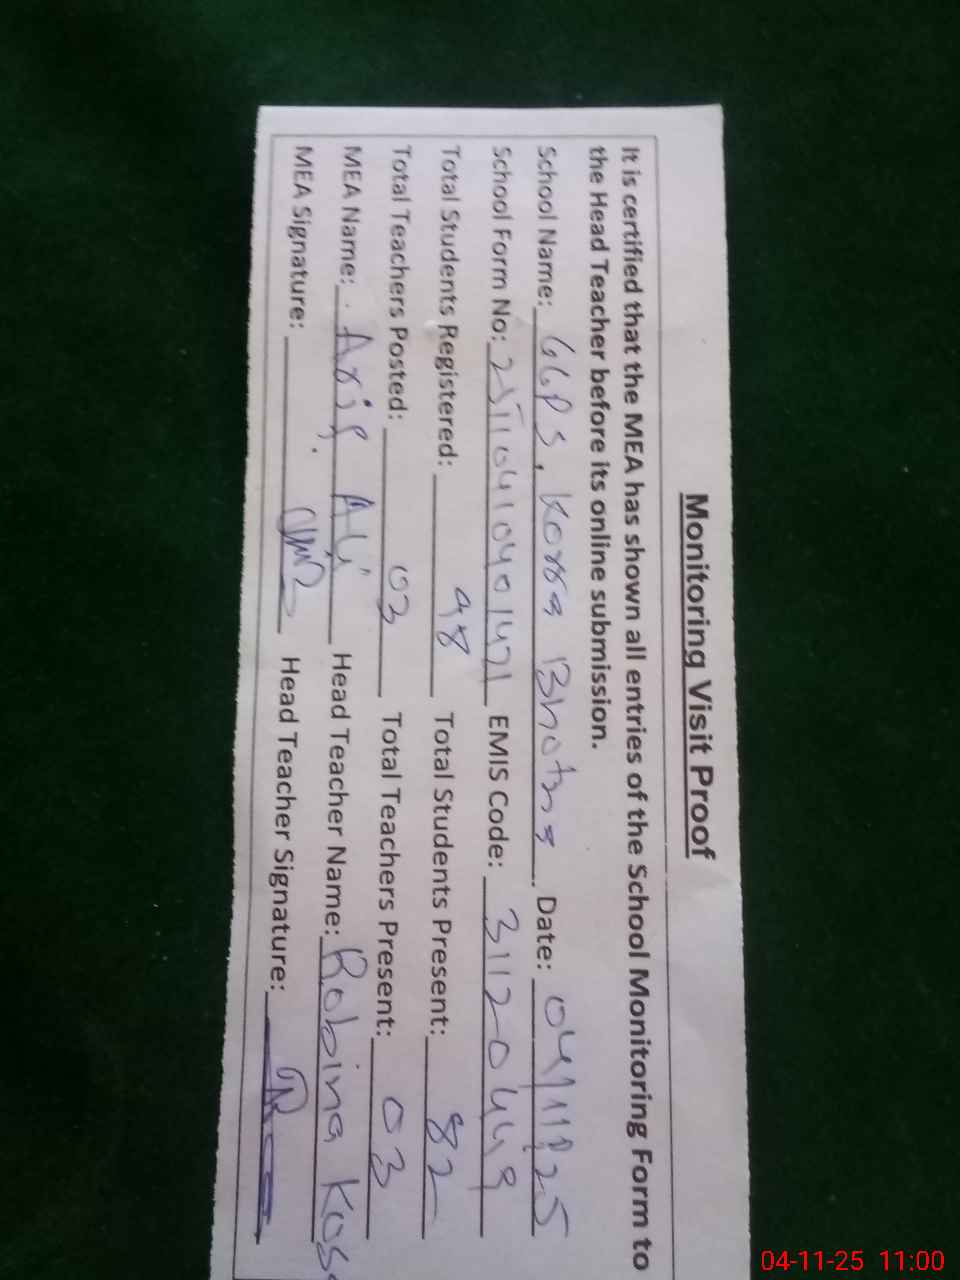 Monitoring Visit Proof
It is certified that the MEA has shown all entries of the School Monitoring Form to
the Head Teacher before its online submission.
School Name: GGPS, Korra Bhotna. Date: 04/11/25
School Form No: EMIS Code: 31120449
Total Students Registered: 98 Total Students Present: 82
Total Teachers Posted: 03 Total Teachers Present: 03
MEA Name: Asif Ali Head Teacher Name: Robina
MEA Signature: Head Teacher Signature:
04-11-25 11:00